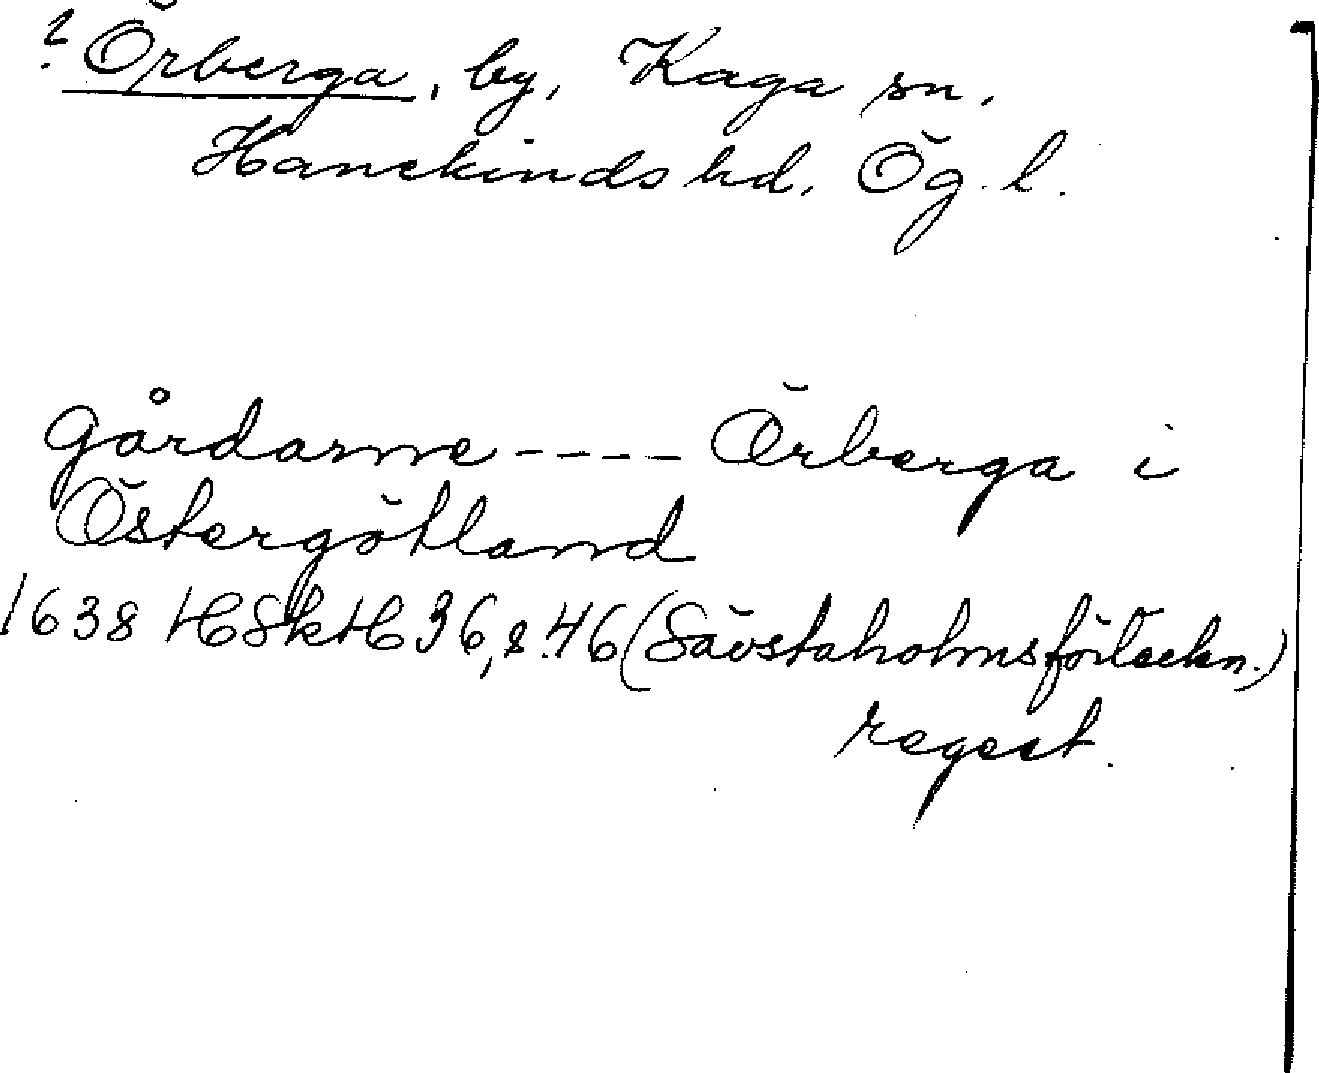 ? Örberga, by, Kaga sn.
Hanekinds hd. Ög. l.
gårdarne ---- Örberga i
Östergötland
1638 HSkH 36, s. 46 (Sävstaholmsförteckn.)
regest.